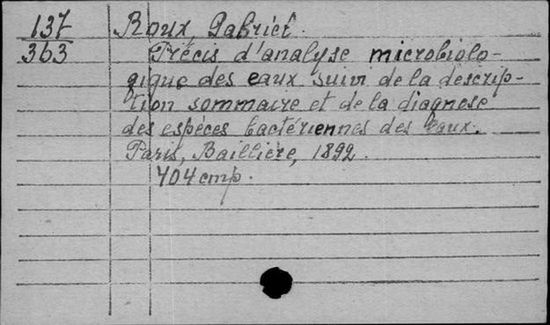 137 Roux, Gabriel.
363 Précis d'analyse microbiolo-
gique des eaux suivi de la descrip-
tion sommaire et de la diagnose
des espéces bactériennes des eaux.
Paris, Baillière, 1892.
404 стр.